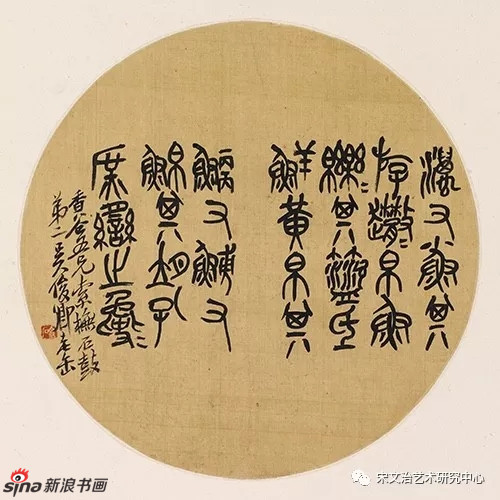 澫又小魚其
斿趩趩帛魚
皪皪其盜氐
鮮黃帛其
鯿又鯆又
鮊其朔孔
庶臠之夐夐
香谷五兄索橅石鼓
第二吳俊卿老缶
sina新浪书画
宋文治艺术研究中心